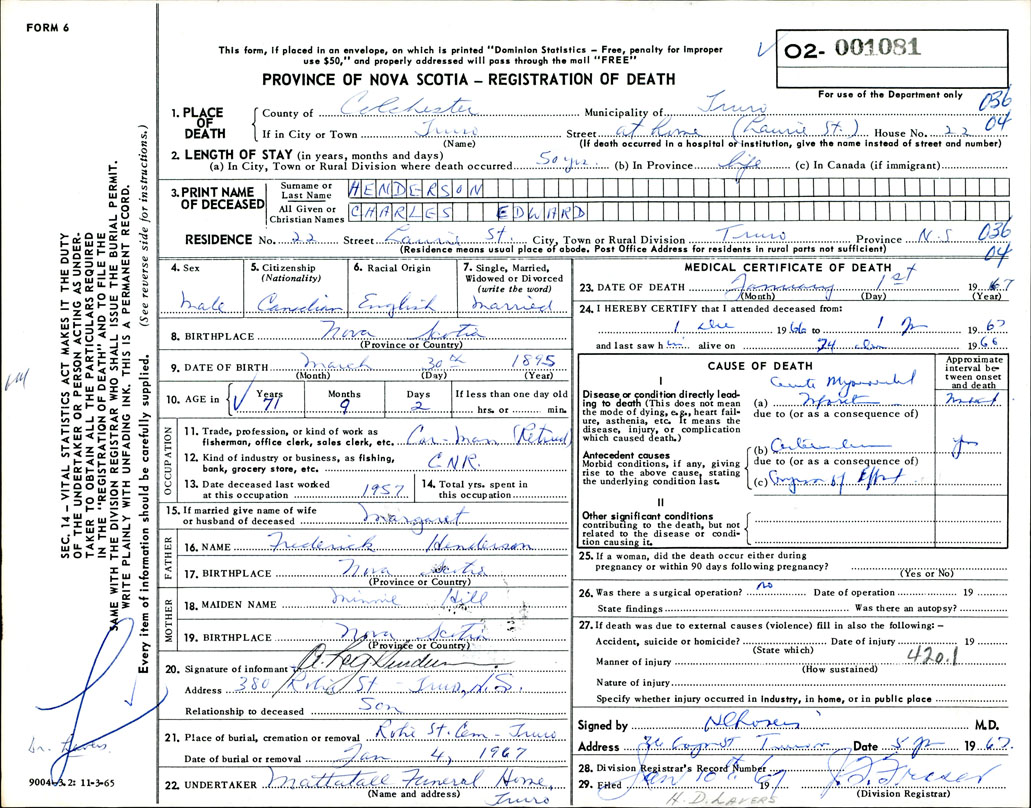 FORM 6
This form, if placed in an envelope, on which is printed "Dominion Statistics – Free, penalty for improper
use $50," and properly addressed will pass through the mail "FREE"
02- 001081
PROVINCE OF NOVA SCOTIA – REGISTRATION OF DEATH
For use of the Department only
036
04
1. PLACE OF DEATH County of Colchester Municipality of Truro
If in City or Town Truro Street at home (Laurie St.) House No. 22
(Name) (If death occurred in a hospital or institution, give the name instead of street and number)
2. LENGTH OF STAY (in years, months and days)
(a) In City, Town or Rural Division where death occurred 50 yrs. (b) In Province life (c) In Canada (if immigrant)
3. PRINT NAME OF DECEASED Surname or Last Name HENDERSON
All Given or Christian Names CHARLES EDWARD
RESIDENCE No. 22 Street Laurie St. City, Town or Rural Division Truro Province N.S
036
04
(Residence means usual place of abode. Post Office Address for residents in rural parts not sufficient)
4. Sex
Male
5. Citizenship
(Nationality)
Canadian
6. Racial Origin
English
7. Single, Married,
Widowed or Divorced
(write the word)
Married
8. BIRTHPLACE Nova Scotia
(Province or Country)
9. DATE OF BIRTH March 30th 1895
(Month) (Day) (Year)
10. AGE in Years Months Days If less than one day old
71 9 2 hrs. or min.
OCCUPATION
11. Trade, profession, or kind of work as
fisherman, office clerk, sales clerk, etc. Car-Man (Retired)
12. Kind of industry or business, as fishing,
bank, grocery store, etc. CNR.
13. Date deceased last worked
at this occupation 1957
14. Total yrs. spent in
this occupation
15. If married give name of wife
or husband of deceased Margaret
FATHER
16. NAME Frederick Henderson
17. BIRTHPLACE Nova Scotia
(Province or Country)
MOTHER
18. MAIDEN NAME Minnie Hill
19. BIRTHPLACE Nova Scotia
(Province or Country)
20. Signature of informant
Address 380 Robie St - Truro, N.S.
Relationship to deceased Son
21. Place of burial, cremation or removal Robie St. Cem - Truro
Date of burial or removal Jan 4, 1967
22. UNDERTAKER Mattatall Funeral Home,
(Name and address) Truro
MEDICAL CERTIFICATE OF DEATH
23. DATE OF DEATH January 1st 1967
(Month) (Day) (Year)
24. I HEREBY CERTIFY that I attended deceased from:
1 Dec 1966 to 1 Jan 1967
and last saw him alive on 1966
CAUSE OF DEATH
Approximate
interval be-
tween onset
and death
I
Disease or condition directly lead-
ing to death (This does not mean
the mode of dying, e.g., heart fail-
ure, asthenia, etc. It means the
disease, injury, or complication
which caused death.)
Acute Myocardial
(a) Infarct
due to (or as a consequence of)
Antecedent causes
Morbid conditions, if any, giving
rise to the above cause, stating
the underlying condition last.
(b)
due to (or as a consequence of)
(c) Angina of Effort
II
Other significant conditions
contributing to the death, but not
related to the disease or condi-
tion causing it.
25. If a woman, did the death occur either during
pregnancy or within 90 days following pregnancy?
(Yes or No)
26. Was there a surgical operation? no Date of operation 19
State findings Was there an autopsy?
27. If death was due to external causes (violence) fill in also the following: –
Accident, suicide or homicide? Date of injury 19
(State which)
420.1
Manner of injury
(How sustained)
Nature of injury
Specify whether injury occurred in industry, in home, or in public place
Signed by M.D.
Address Truro Date 1967
28. Division Registrar's Record Number
29. Filed Jan 10th 1967
(Division Registrar)
H. D. LAVERS
SEC. 14 – VITAL STATISTICS ACT MAKES IT THE DUTY
OF THE UNDERTAKER OR PERSON ACTING AS UNDER-
TAKER TO OBTAIN ALL THE PARTICULARS REQUIRED
IN THE "REGISTRATION OF DEATH" AND TO FILE THE
SAME WITH THE DIVISION REGISTRAR WHO SHALL ISSUE THE BURIAL PERMIT.
WRITE PLAINLY WITH UNFADING INK. THIS IS A PERMANENT RECORD.
Every item of information should be carefully supplied. (See reverse side for instructions.)
9004 3.2: 11-3-65